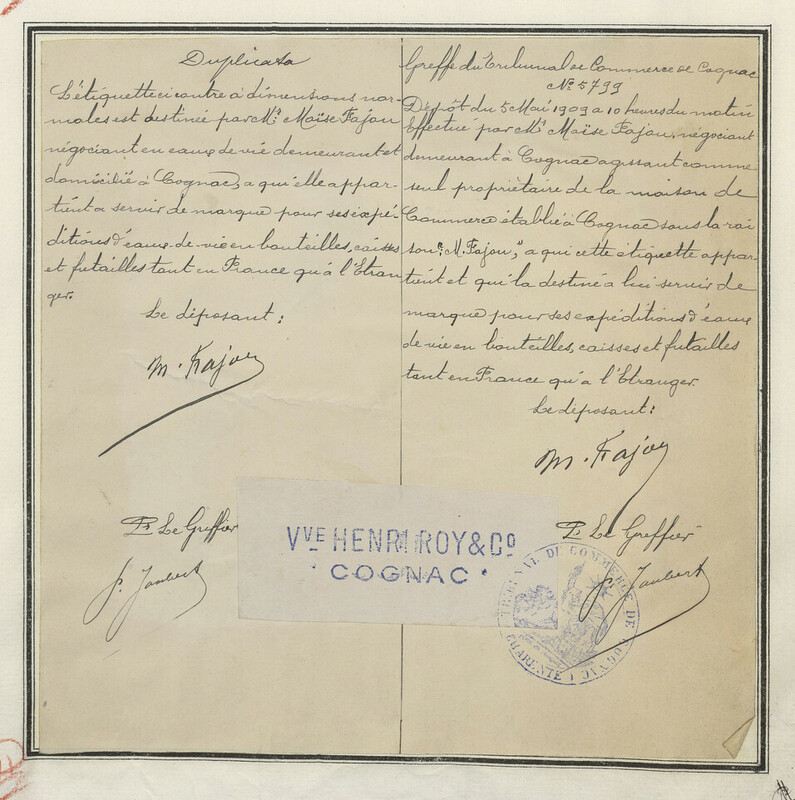 Duplicata
L'étiquette ci contre à dimensions nor-
males est destinée par Mr. Maïse Fajou
négociant en eaux de vie demeurant et
domicilié à Cognac, a qui elle appar-
tient a servir de marque pour ses expé-
ditions d'eaux-de-vie en bouteilles, caisses
et futailles tant en France qu'à l'Etran
ger.
Le déposant:
M. Fajou
Pr Le Greffier
Joubert
Greffe du Tribunal de Commerce de Cognac
No 5799
Dépôt du 5 Mai 1909 a 10 heures du matin
Effectué par Mr. Maïse Fajou, négociant
demeurant à Cognac agissant comme
seul propriétaire de la maison de
Commerce établie à Cognac sous la rai
son "M. Fajou," a qui cette étiquette appar-
tient et qui la destine a lui servir de
marque pour ses expéditions d'eaux
de vie en bouteilles, caisses et futailles
tant en France qu'a l'Etranger.
Le déposant:
M. Fajou
Pr Le Greffier
Joubert
VVE HENRI ROY & Co
· COGNAC ·
TRIBUNAL DE COMMERCE DE COGNAC
CHARENTE